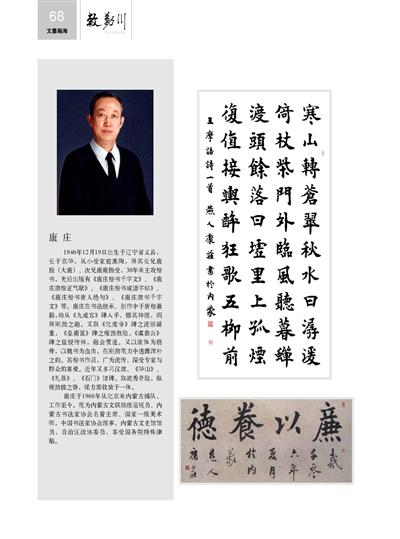 68
文墨瀚海
敕勒川
康 庄
1946年12月19日出生于辽宁省义县，
长于京华，从小受家庭熏陶，得其长兄康
殷（大康）、次兄康雍指受，30年来主攻楷
书，先后出版有《康庄楷书千字文》、《康
庄书正气歌》、《康庄楷书成语字帖》、
《康庄楷书唐人绝句》、《康庄隶书千字
文》等。康庄在书法继承、创作中于唐楷最
勤，幼从《九成宫》碑入手，悟其神理，而
得刚劲之骨。又取《化度寺》碑之淡润凝
重，《皇甫诞》碑之瘦劲险绝、《虞恭公》
碑之温悦传神，融会贯通。又以欧体为筋
骨，以魏书为血肉，在刚劲笔力中透露浑朴
之韵。其楷书作品，广为流传，深受专家与
群众的喜爱。近年又多习汉隶，《华山》、
《礼器》、《石门》诸碑，取流秀奇险、纵
横劲拔之势，续方圆收放于一体。
康庄于1968年从北京来内蒙古插队、
工作至今。现为内蒙古文联助理巡视员、内
蒙古书法家协会名誉主席、国家一级美术
师，中国书法家协会理事，内蒙古文史馆馆
员，自治区政协委员，享受国务院特殊津
贴。
寒山轉蒼翠秋水日潺湲
倚杖柴門外臨風聽暮蟬
渡頭餘落日墟里上孤煙
復值接輿醉狂歌五柳前
王摩詰詩一首 燕人康莊書於內蒙
廉以養德
歲
六年
夏月
於內
蒙
燕人
康莊